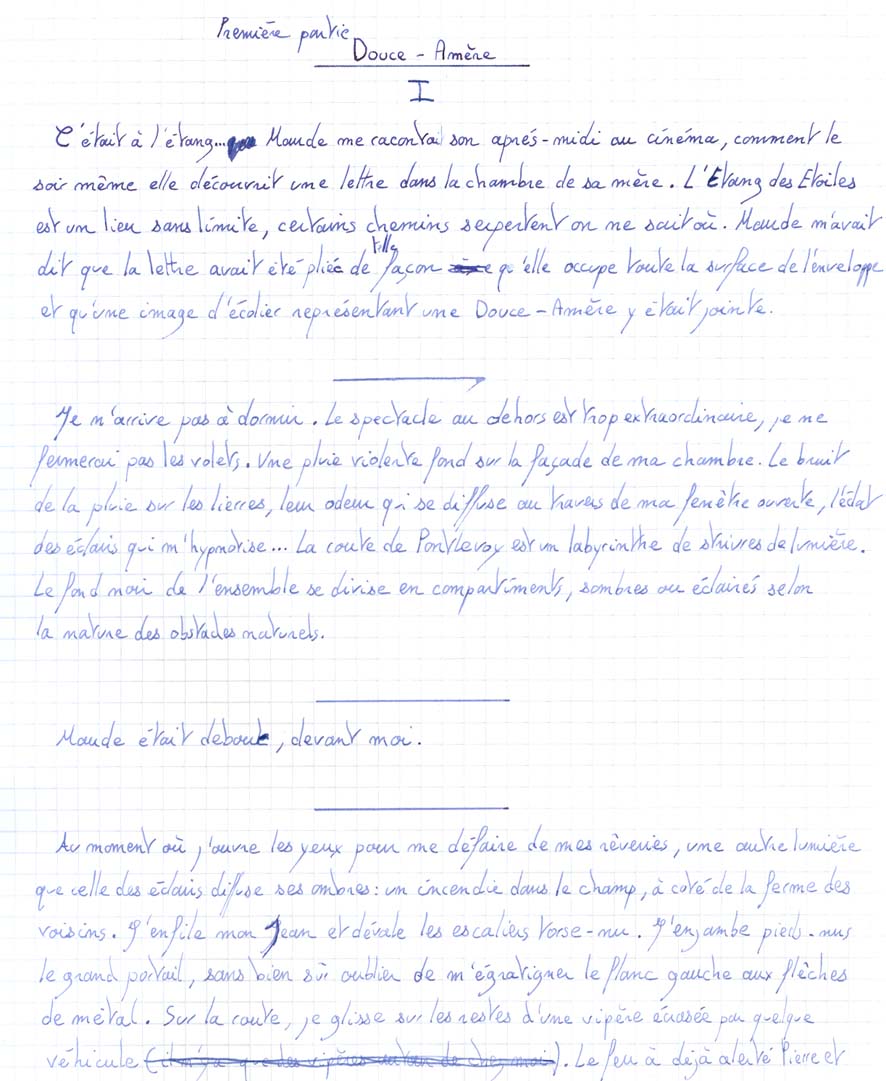 Première partie
Douce - Amère
I
C'était à l'étang... Maude me raconta son après-midi au cinéma, comment le
soir même elle découvrit une lettre dans la chambre de sa mère. L'Etang des Etoiles
est un lieu sans limite, certains chemins serpentent on ne sait où. Maude m'avait
dit que la lettre avait été pliée de telle façon qu'elle occupe toute la surface de l'enveloppe
et qu'une image d'écolier représentant une Douce-Amère y était jointe.
Je n'arrive pas à dormir. Le spectacle au dehors est trop extraordinaire, je ne
fermerai pas les volets. Une pluie violente fond sur la façade de ma chambre. Le bruit
de la pluie sur les lierres, leur odeur qui se diffuse au travers de ma fenêtre ouverte, l'éclat
des éclairs qui m'hypnotise... La route de Pontlevoy est un labyrinthe de striures de lumière.
Le fond noir de l'ensemble se divise en compartiments, sombres ou éclairés selon
la nature des obstacles naturels.
Maude était debout, devant moi.
Au moment où j'ouvre les yeux pour me défaire de mes rêveries, une autre lumière
que celle des éclairs diffuse ses ombres : un incendie dans le champ, à coté de la ferme des
voisins. J'enfile mon Jean et dévale les escaliers torse-nu. J'enjambe pieds-nus
le grand portail, sans bien sûr oublier de m'égratigner le flanc gauche aux flèches
de métal. Sur la route, je glisse sur les restes d'une vipère écrasée par quelque
véhicule (il n'y a que des vipères autour de chez moi). Le feu à déjà alerté Pierre et